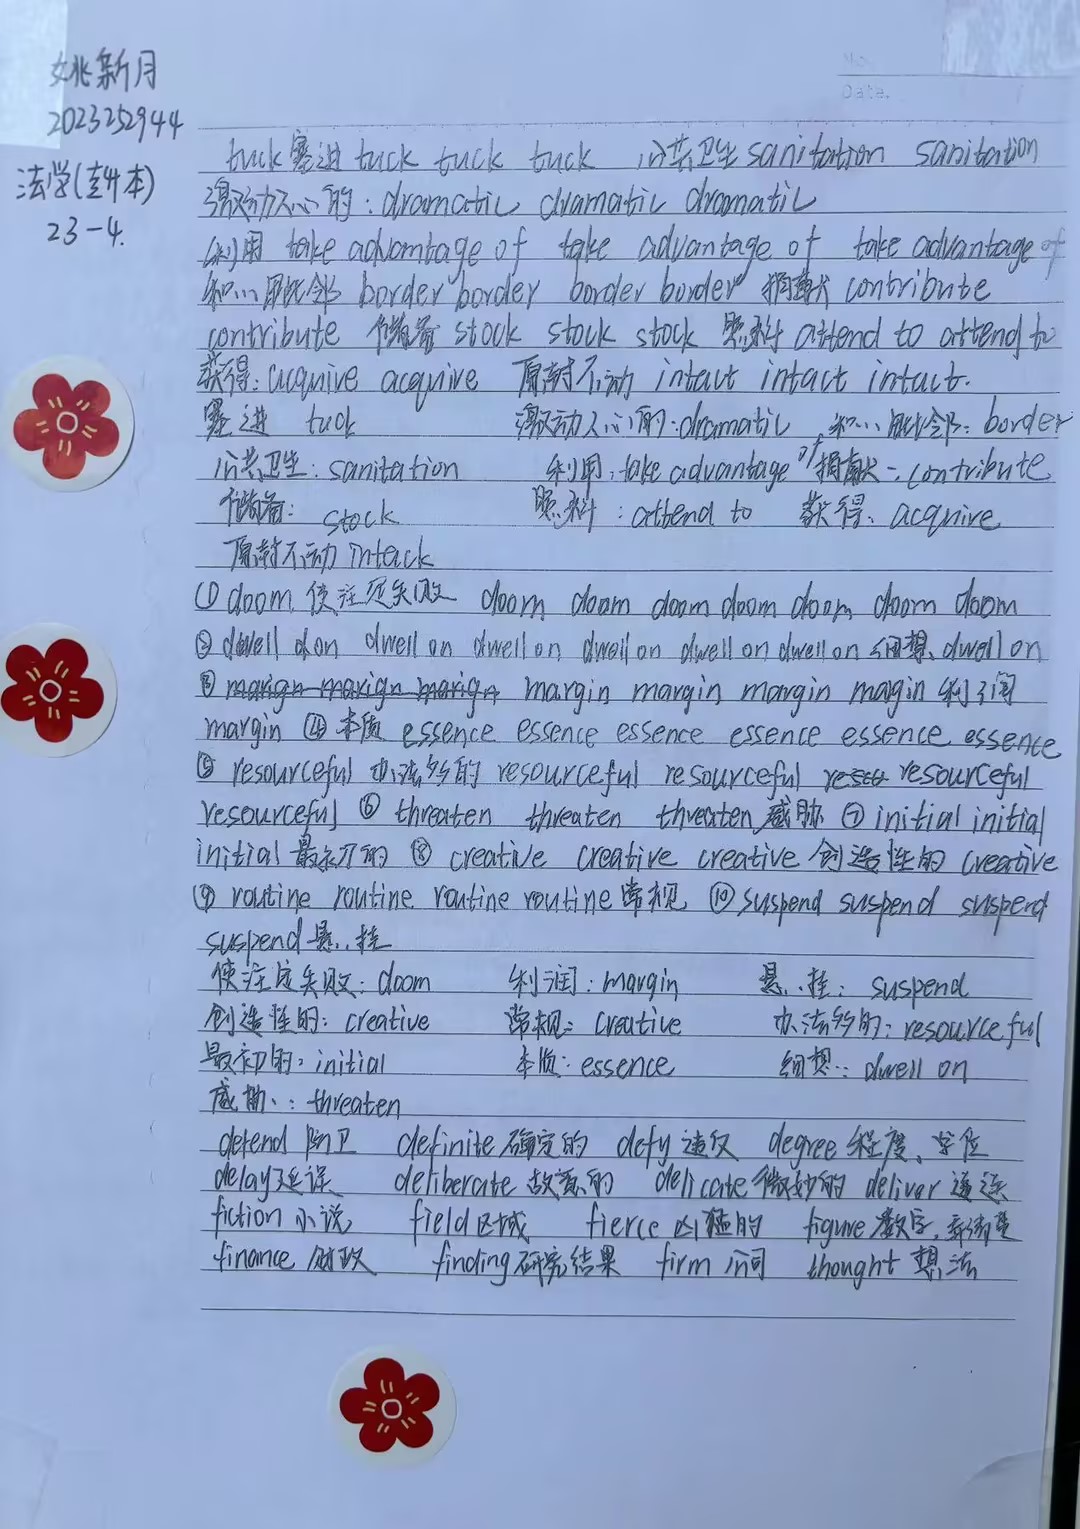 姚新月
2023252944
法学(专升本)
23-4.
tuck 塞进 tuck tuck tuck 公共卫生 sanitation sanitation
激动人心的: dramatic dramatic dramatic
利用 take advantage of take advantage of take advantage of
和...毗邻 border border border border 捐献 contribute
contribute 储备 stock stock stock 照料 attend to attend to
获得: acquire acquire 原封不动 intact intact intact.
塞进 tuck 激动人心的: dramatic 和...毗邻: border
公共卫生: sanitation 利用: take advantage of 捐献: contribute
储备: stock 照料: attend to 获得: acquire
原封不动 intack
① doom 使注定失败 doom doom doom doom doom doom doom
② dwell on dwell on dwell on dwell on dwell on 细想 dwell on
③ marign marign marign margin margin margin magin 利润
margin ④ 本质 essence essence essence essence essence essence
⑤ resourceful 办法多的 resourceful resourceful resourceful
resourceful ⑥ threaten threaten threaten 威胁 ⑦ initial initial
initial 最初的 ⑧ creative creative creative 创造性的 creative
⑨ routine routine routine routine 常规 ⑩ suspend suspend suspend
suspend 悬挂
使注定失败: doom 利润: margin 悬挂: suspend
创造性的: creative 常规: creative 办法多的: resourceful
最初的: initial 本质: essence 细想: dwell on
威胁: threaten
defend 防卫 definite 确定的 defy 违反 degree 程度、学位
delay 延误 deliberate 故意的 delicate 微妙的 deliver 递送
fiction 小说 field 区域 fierce 凶猛的 figure 数字,
finance 财政 finding 研究结果 firm 公司 thought 想法